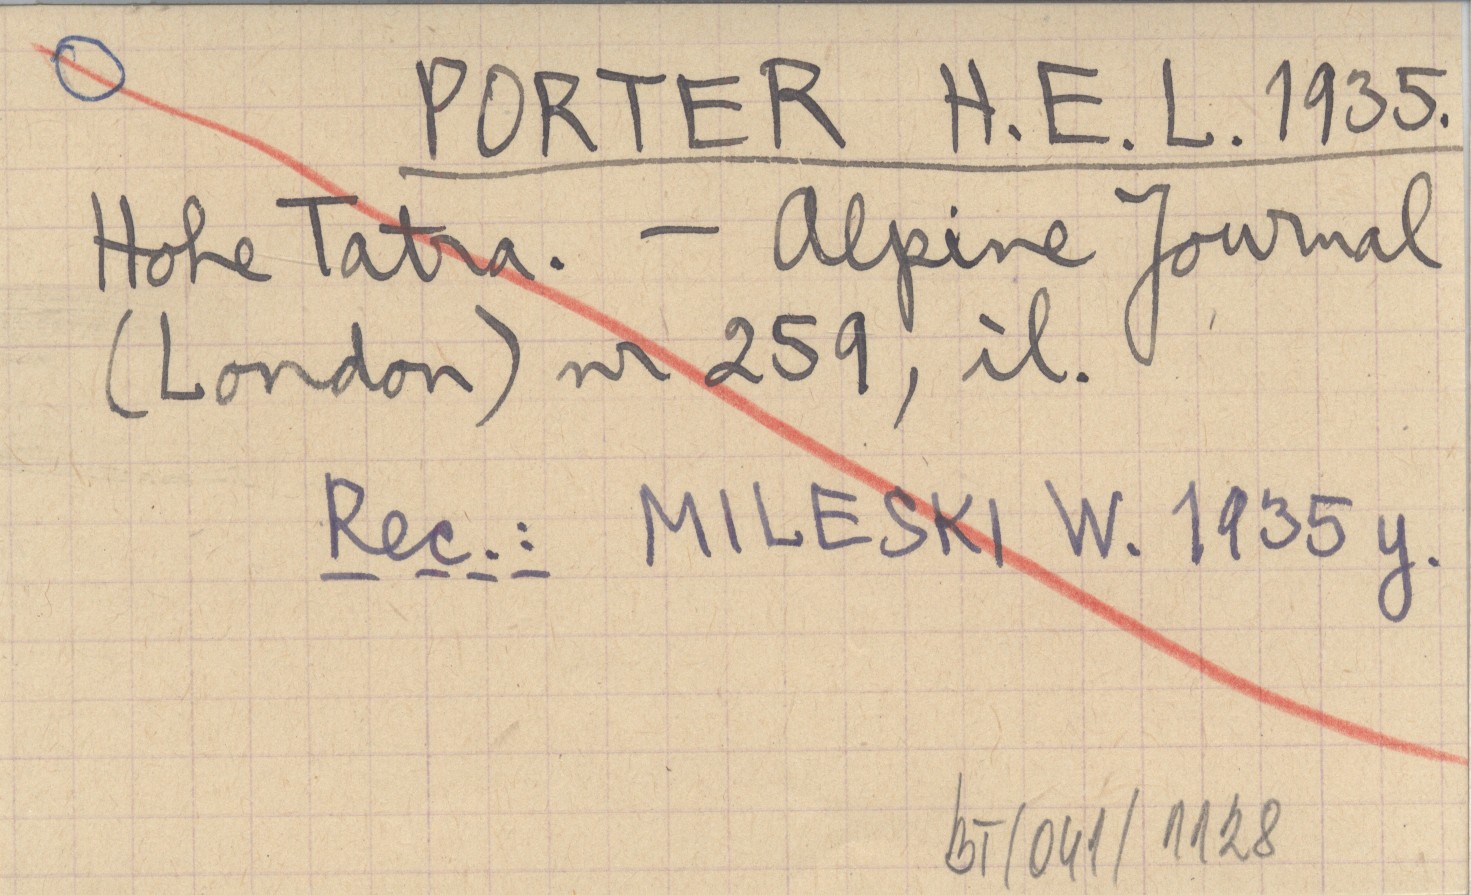 PORTER H.E.L. 1935.
Hohe Tatra. — Alpine Journal
(London) nr 259, il.
Rec.: MILESKI W. 1935 y.
BT/041/1128